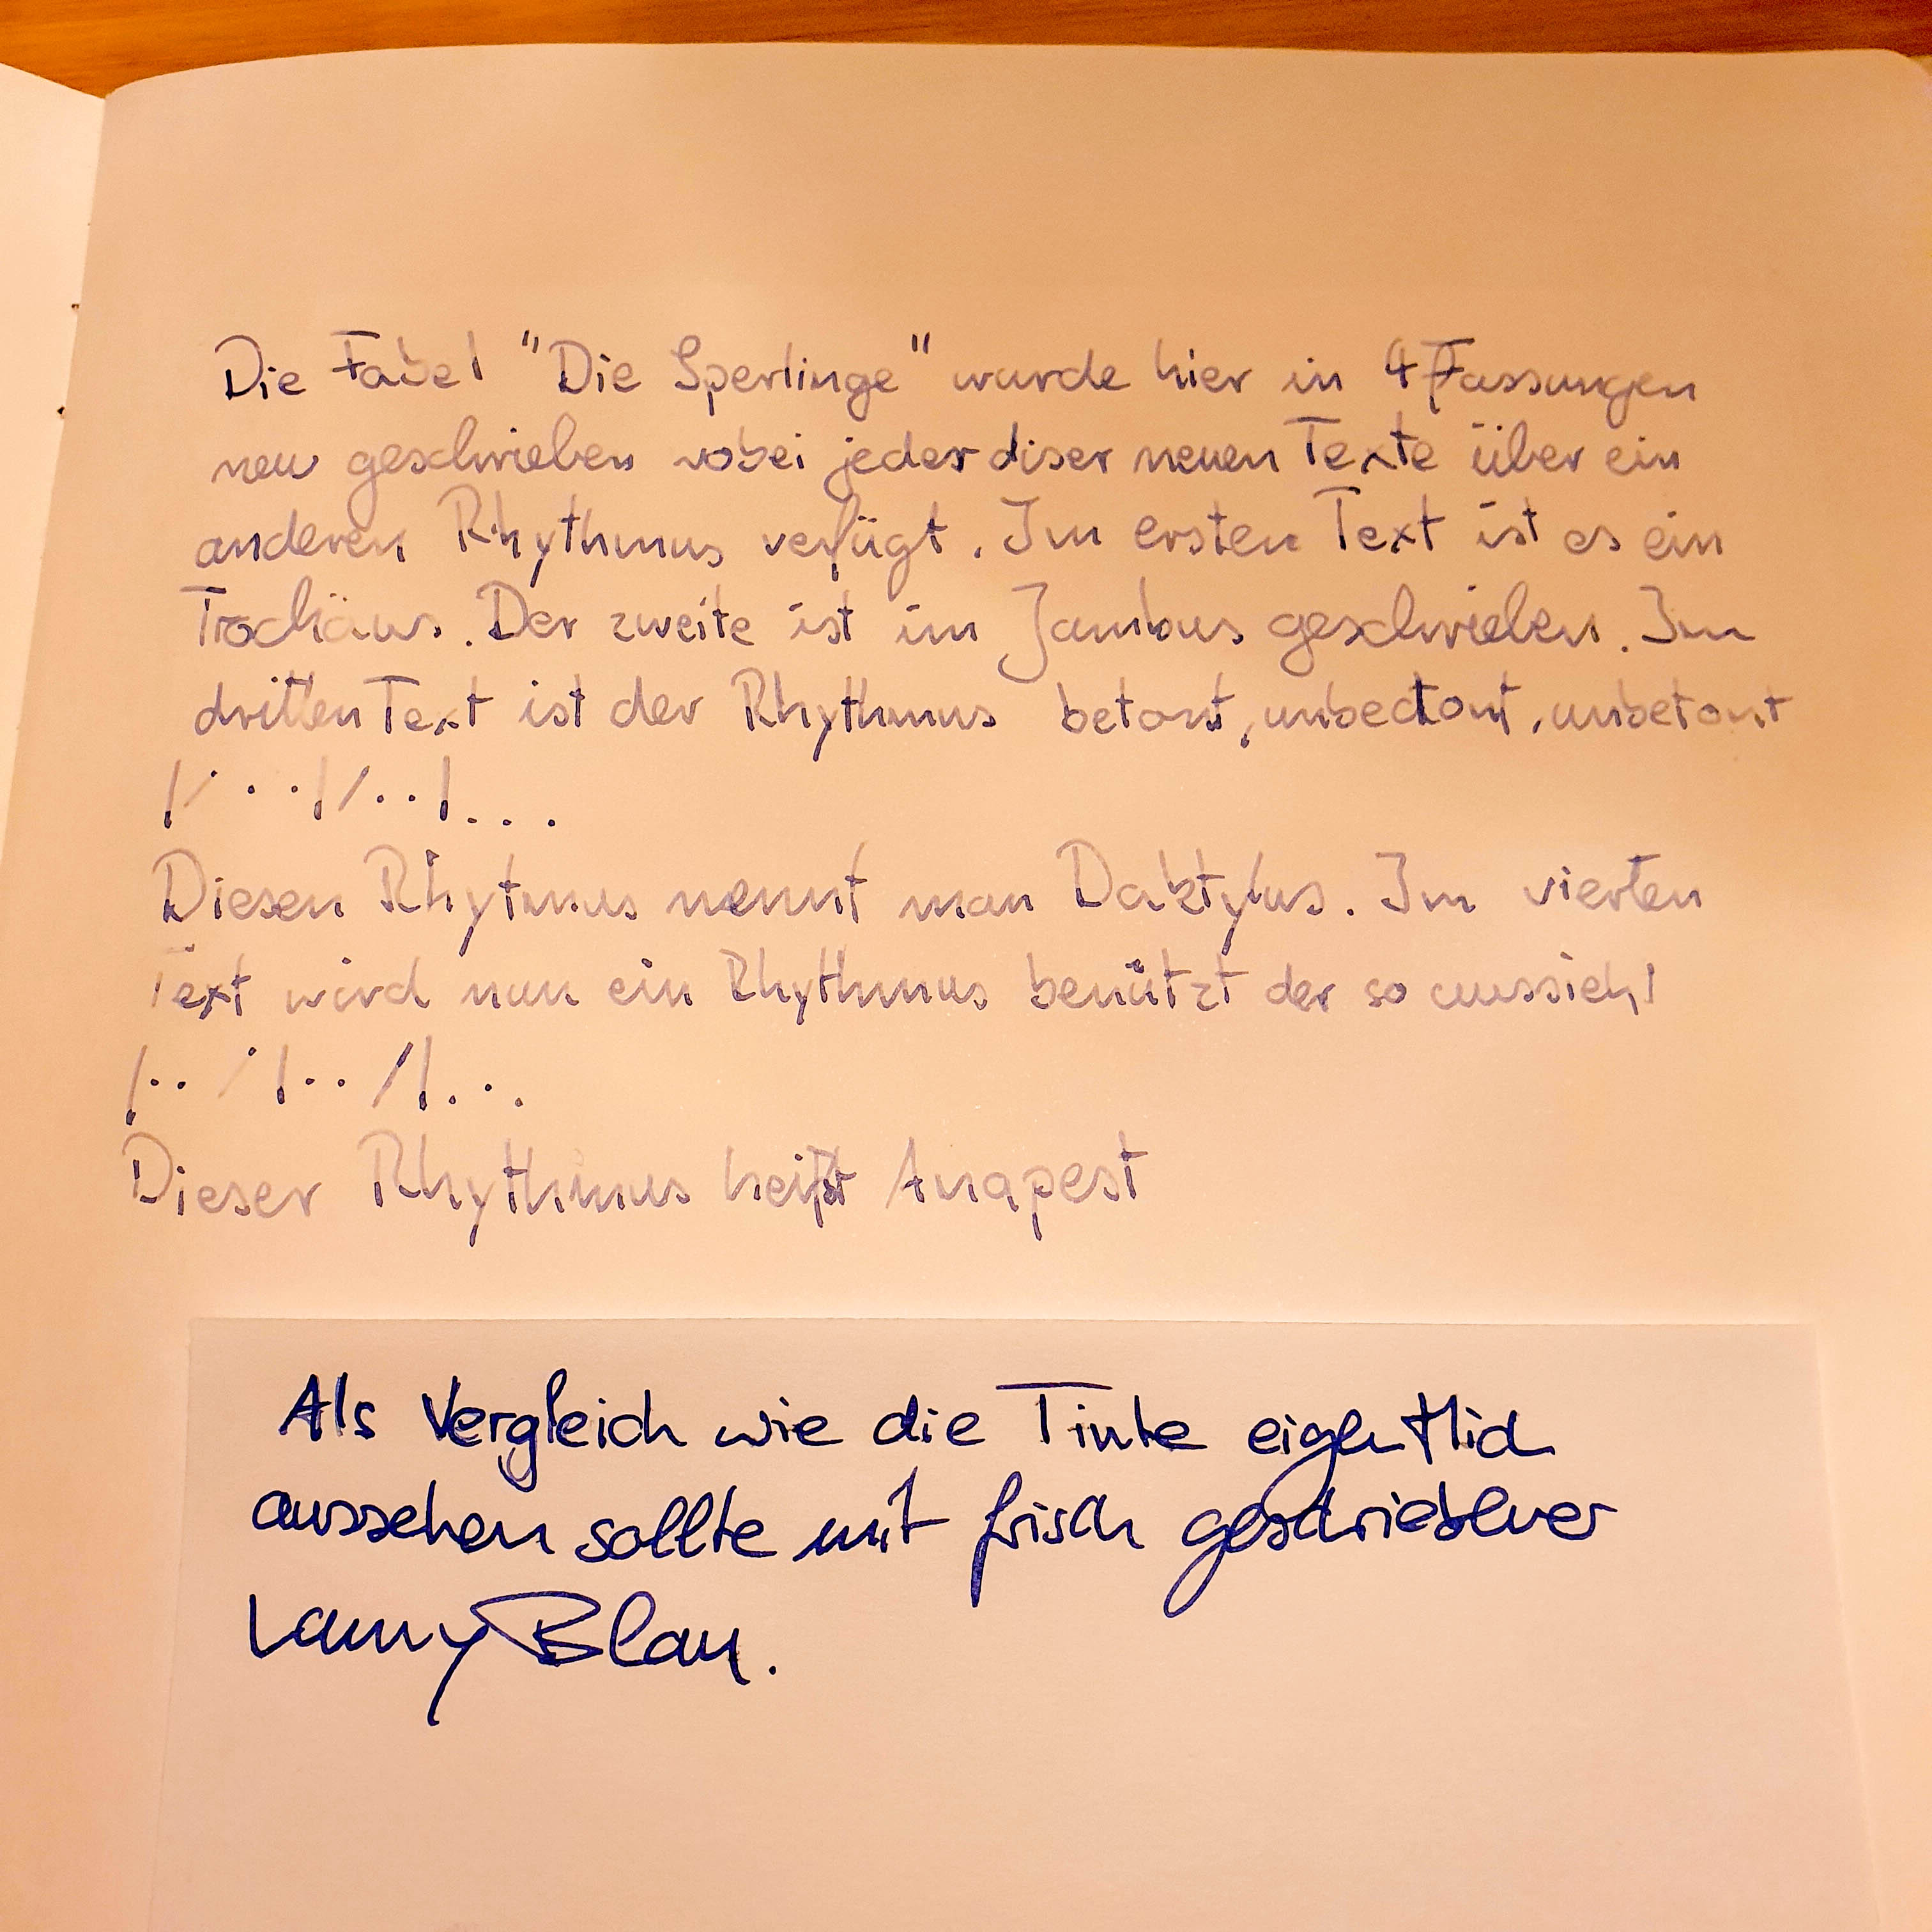 Die Fabel "Die Sperlinge" wurde hier in 4 Fassungen
neu geschrieben wobei jeder diser neuen Texte über ein
anderen Rhythmus verfügt. Im ersten Text ist es ein
Trochäus. Der zweite ist im Jambus geschrieben. Im
dritten Text ist der Rhythmus betont, unbetont, unbetont
|/··|/··|...
Diesen Rhytmus nennt man Daktylus. Im vierten
Text wird nun ein Rhythmus benützt der so aussieht
|··/|··/|...
Dieser Rhythmus heißt Anapest
Als Vergleich wie die Tinte eigentlich
aussehen sollte mit frisch geschriebener
Lamy Blau.